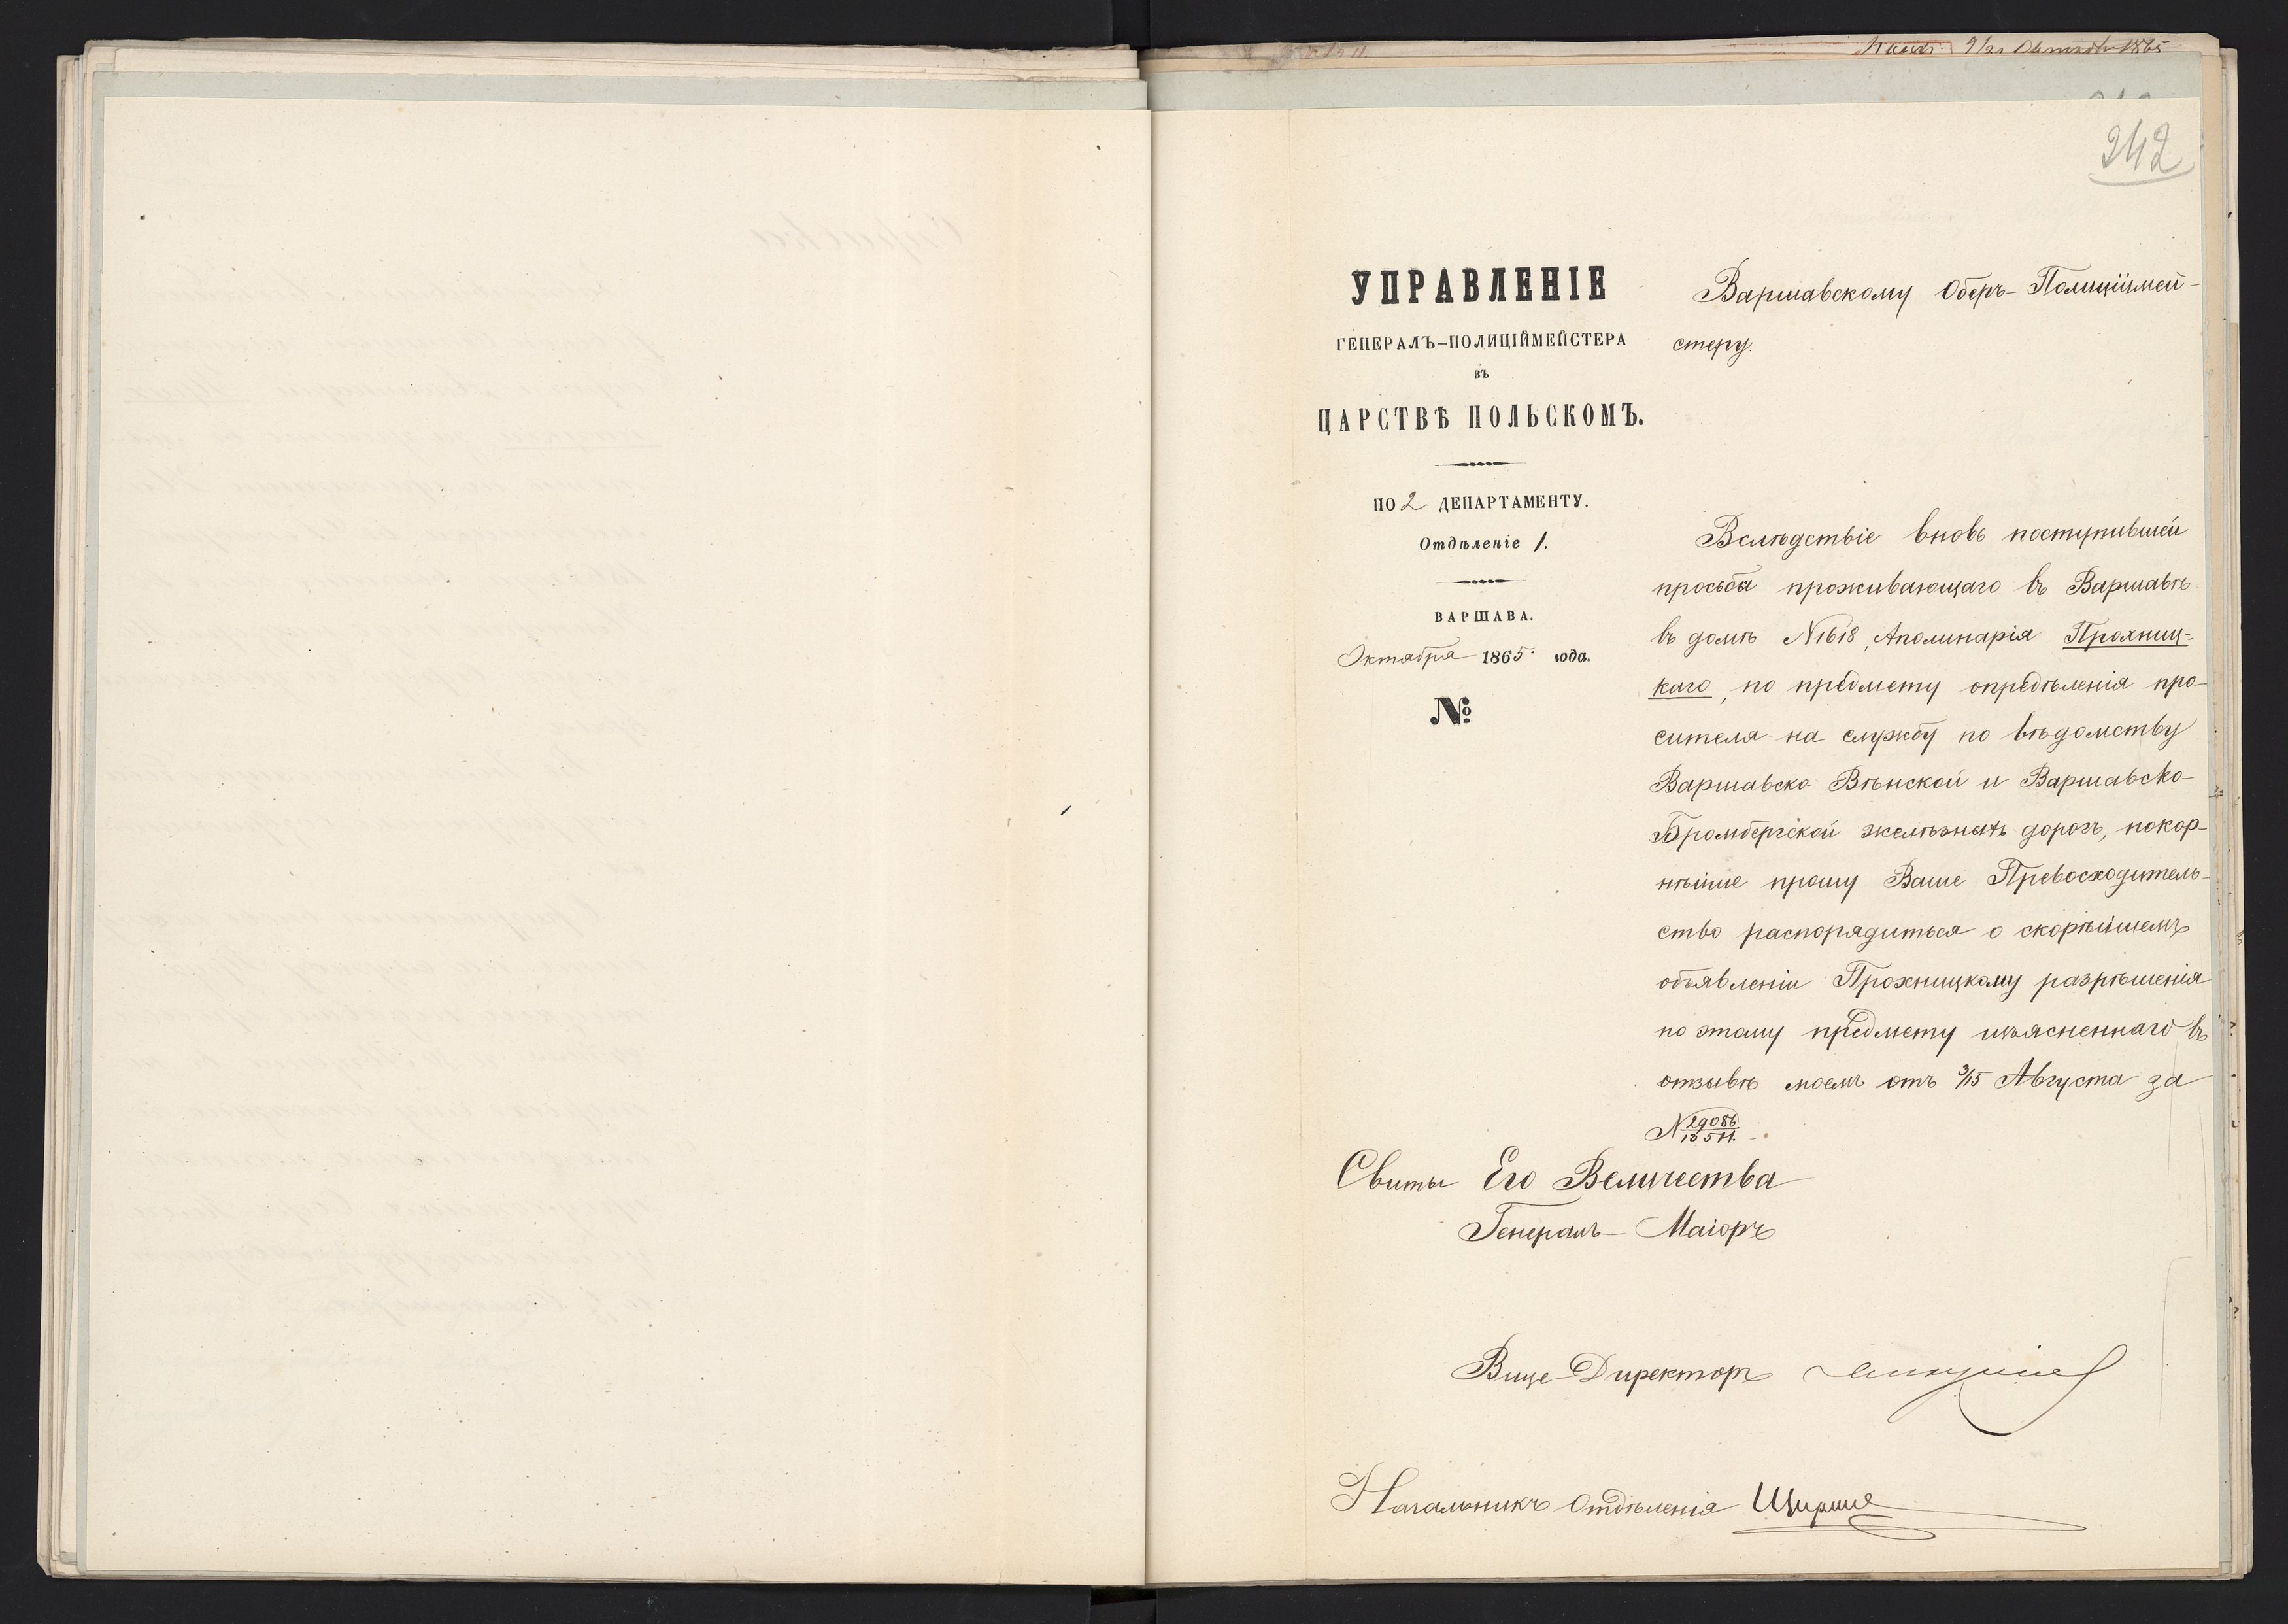 9/21 Октября 1865
242
УПРАВЛЕНІЕ
ГЕНЕРАЛЪ-ПОЛИЦІЙМЕЙСТЕРА
ВЪ
ЦАРСТВѢ ПОЛЬСКОМЪ.
ПО 2 ДЕПАРТАМЕНТУ.
Отдѣленіе 1.
ВАРШАВА.
Октября 1865 года.
№
Варшавскому Оберъ-Полиціймей-
стеру.
Вслѣдствіе вновь поступившей
просьбы проживающаго въ Варшавѣ
въ домѣ N1618, Аполинарія Прохниц-
каго, по предмету опредѣленія про-
сителя на службу по вѣдомству
Варшавско Вѣнской и Варшавско-
Бромбергской желѣзныхъ дорогъ, покор-
нѣйше прошу Ваше Превосходитель-
ство распорядиться о скорѣйшемъ
объявленіи Прохницкому разрѣшенія
по этому предмету изъясненнаго въ
отзывѣ моемъ отъ 3/15 Августа за
N 29086/13511.
Свиты Его Величества
Генералъ-Маіоръ
Вице-Директоръ
Начальникъ Отдѣленія